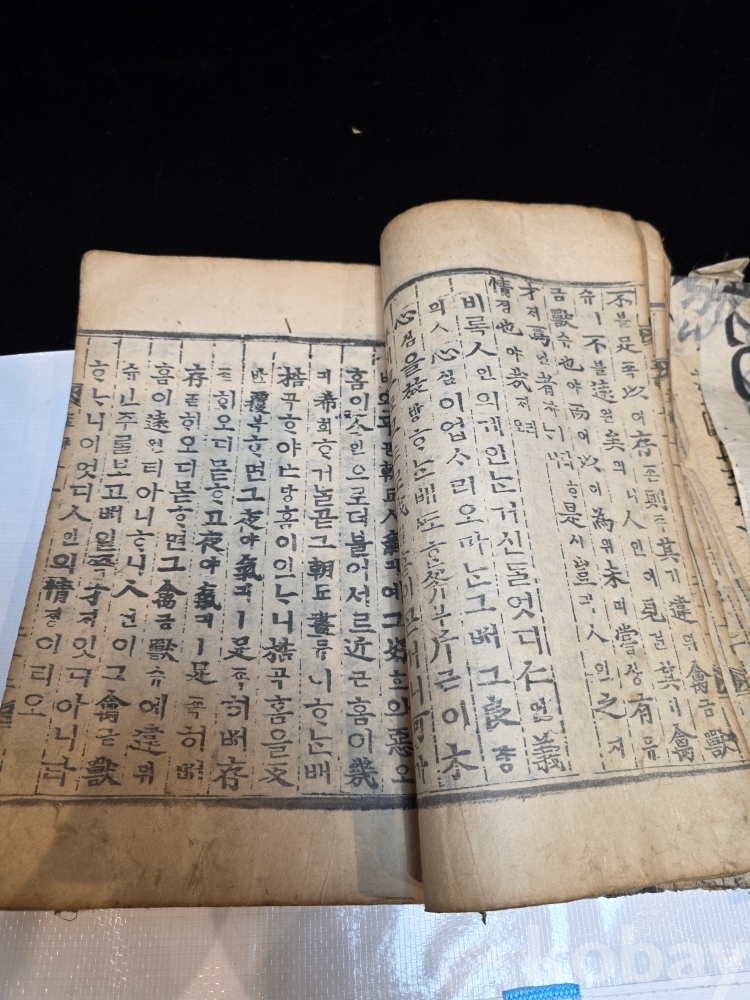 不블足죡以이存존則즉其기違위禽금獸
슈ㅣ不블遠원矣의니人인이見견其기禽
금獸슈也야而이以이爲위未미嘗샹有유
才ᄌᆡ焉언者쟈ㅣ라ᄒᆞᄂᆞ니是시豈긔人인之지
情졍也야哉ᄌᆡ리오
비록人인의게인ᄂᆞᆫ거신ᄃᆞᆯ엇디仁인義
의心심이업ᄉᆞ리오마ᄂᆞᆫ그ᄡᅥ그良량
心심을放방ᄒᆞᄂᆞᆫ배ᄯᅩᄒᆞᆫ斧부斤근이木
홈이人인으로더블어서르近근홈이幾
긔希희ᄒᆞ거ᄂᆞᆯ곧그朝됴晝듀니ᄒᆞᄂᆞᆫ배
梏곡ᄒᆞ야亡망홈이인ᄂᆞ니梏곡홈을反
반覆복ᄒᆞ면그夜야氣긔ㅣ足죡히ᄡᅥ存
존히오디몯ᄒᆞ고夜야氣긔ㅣ足죡히ᄡᅥ
存존히오디몯ᄒᆞ면그禽금獸슈에違위
홈이遠원티아니ᄒᆞ니人인이그禽금獸
슈인주를보고ᄡᅥ일즉才ᄌᆡ잇디아니타
ᄒᆞᄂᆞ니이엇디人인의情졍이리오
kobay